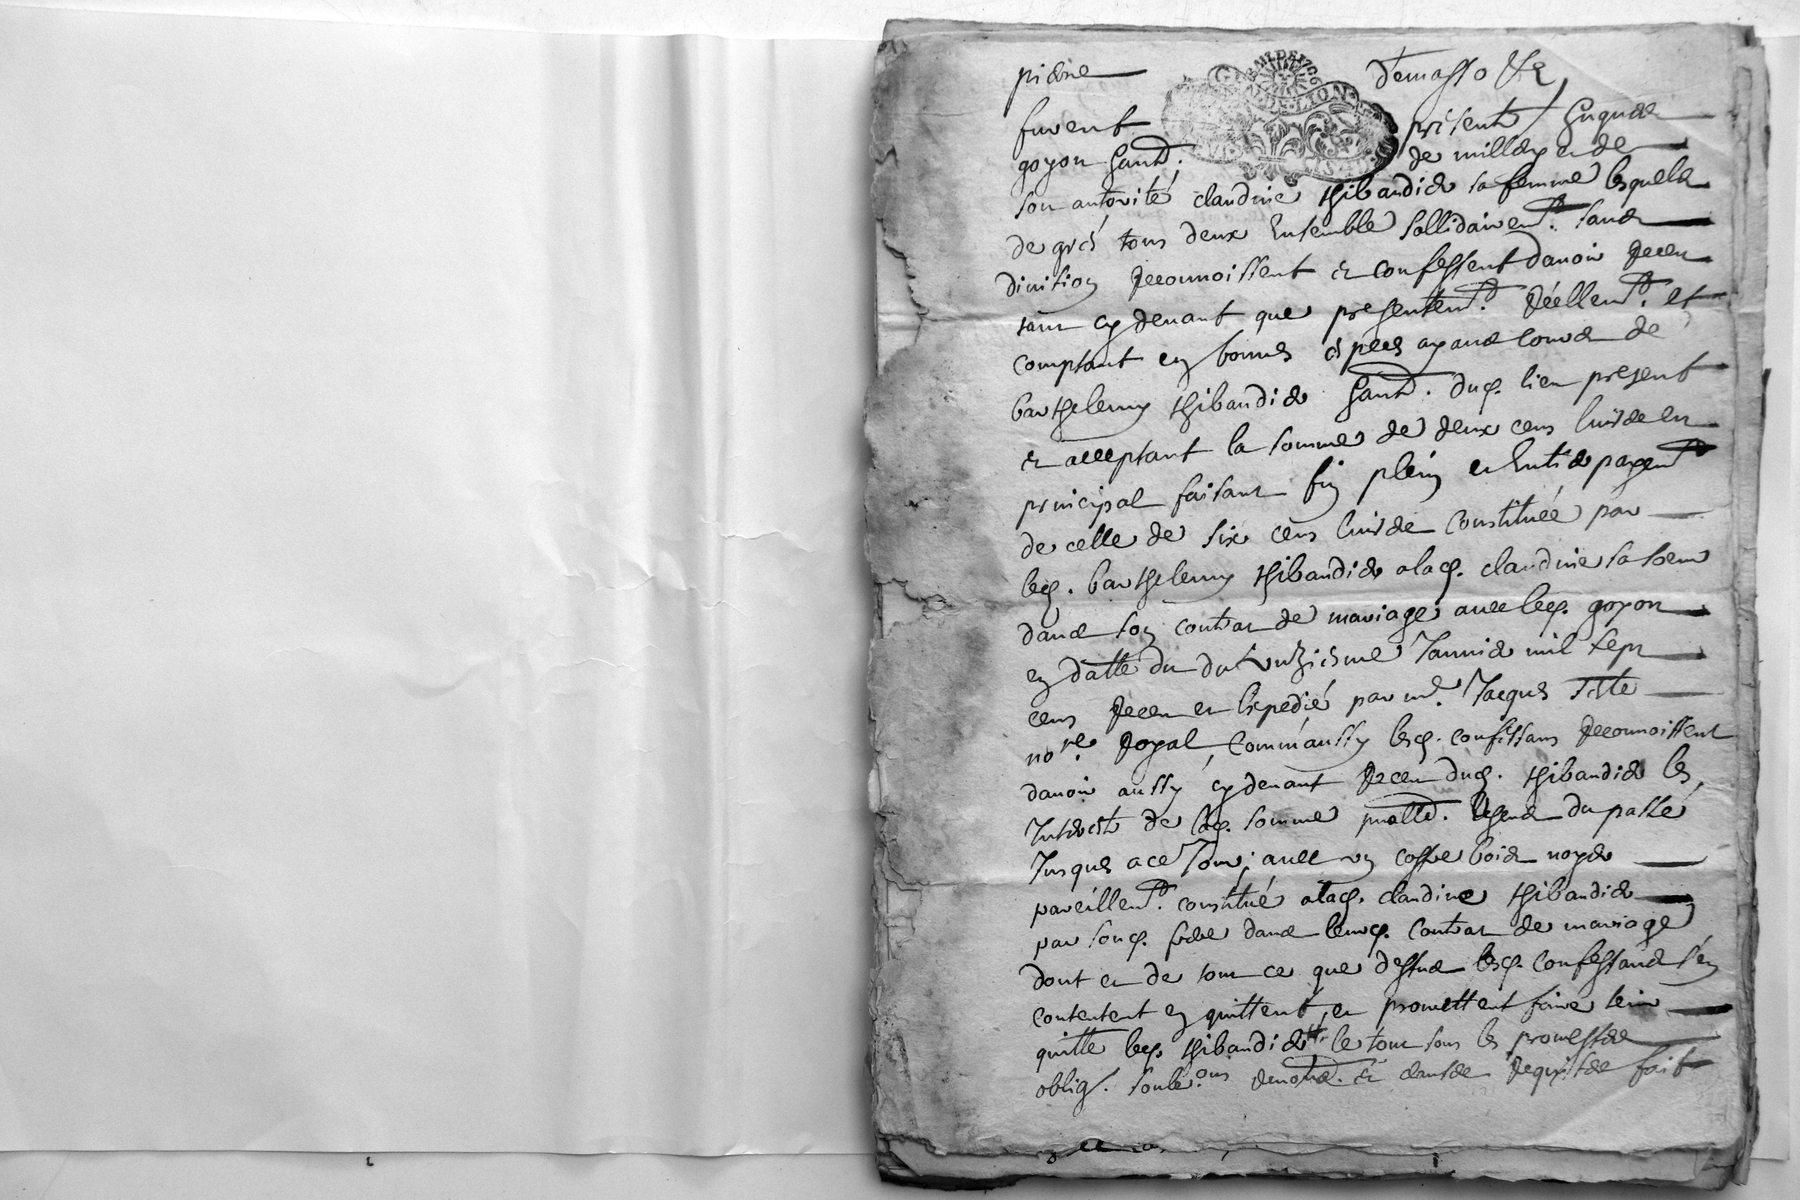 furent présents Enguae
goyon Gant. de millery et de
son autorité claudine thibaudier sa femme lesquels
de gré tous deux Ensemble sollidairemt. sans
division Reconnoissent et confessent davoir Receu
tant cy devant que presentemt. Réellemt. et
comptant en bonnes espèces ayans cours de
barthelemy thibaudier Gant. dud. lieu present
et acceptant la somme de deux cens livres en
principal faisant fin plein et Entier payemt
de celle de six cens livres Constituée par
led. barthelemy thibaudier a lad. claudine sa soeur
dans son contrat de mariage avec led. goyon
en datte du du Janvier mil sept
cens Receu et Expedié par me. Jacques
nore. Royal, Comm'aussy lesd. confessans Reconnoissent
davoir aussy cy devant Receu dud. thibaudier les
Interests de lad. somme du passé
Jusques a ce Jour; avec un coffre bois noyer
pareillemt. constitué a lad. claudine thibaudier
par sond. frere dans leurd. Contrat de mariage
dont et de tout ce que dessus lesd. Confessans s'en
contentent en quittent, et promettent faire tenir
quitte led. thibaudier le tout sous les promesses
oblig. soubons. Renons. et clauses Requises fait